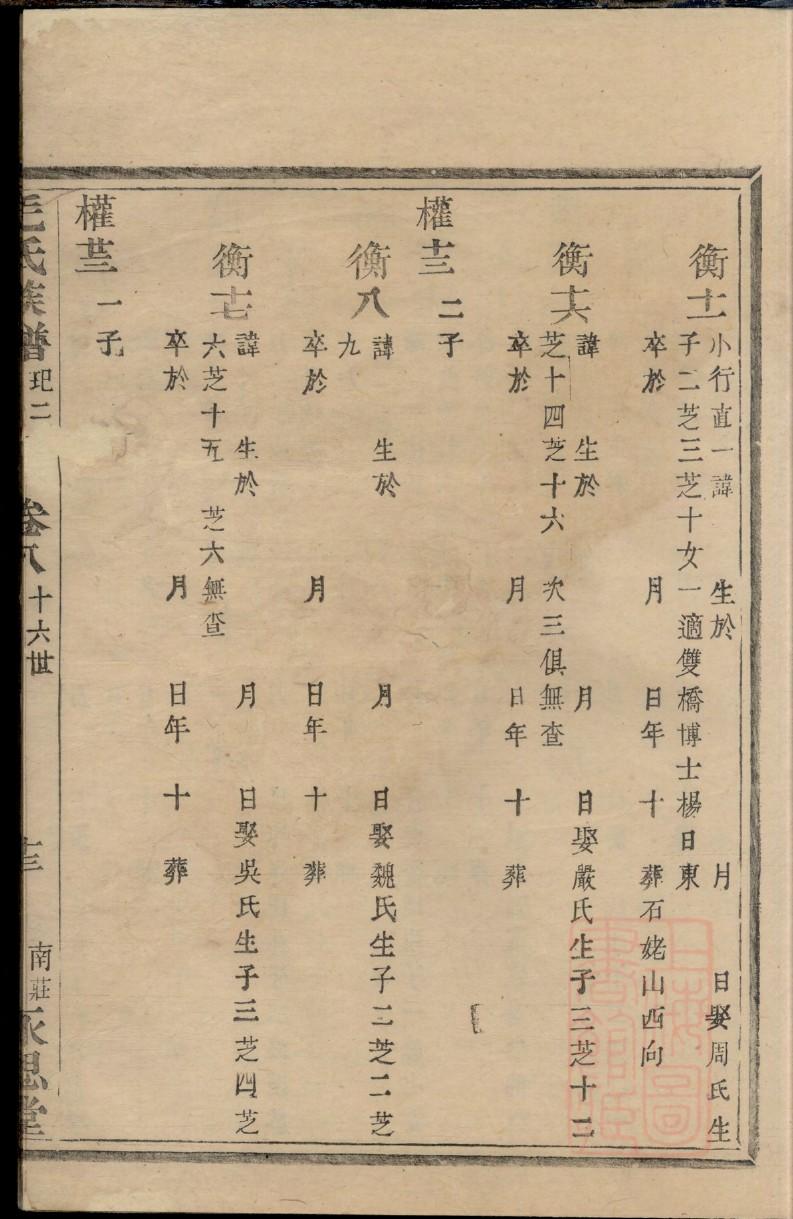 衡十一
小行直一諱 生於 月 日娶周氏生
子二芝三芝十女一適雙橋博士楊日東
卒於 月 日年 十 葬石姥山西向
衡十六
諱 生於 月 日娶嚴氏生子三芝十二
芝十四芝十六 次三俱無查
卒於 月 日年 十 葬
權十三 二子
衡八
諱 生於 月 日娶魏氏生子二芝二芝
九
卒於 月 日年 十 葬
衡十七
諱 生於 月 日娶吳氏生子三芝四芝
六芝十五 芝六無查
卒於 月 日年 十 葬
權廿三 一子
毛氏族譜 玘二 卷八 十六世 十三 南莊 永思堂